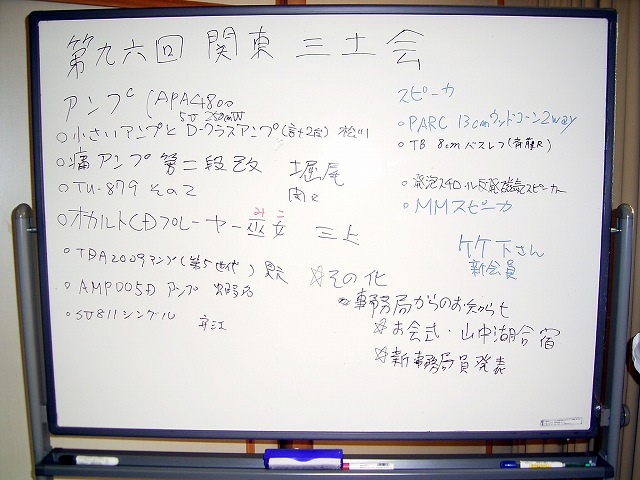 第九六回 関東 三土会
アンプ (APA4800
5V 250mW
○小さいアンプと D-クラスアンプ(計+2台) 松川
○痛アンプ 第二段改 堀尾
○TU-879 その2
みこ
○オカルトCDプレーヤー 巫女 三上
○TDA2009アンプ(第5世代)
○AMP005D アンプ
○5U811シングル
スピーカ
○PARC 13cmウッドコーン2way
○TB 8cm バスレフ(斉藤R)
○発泡スチロール スピーカー
○MMスピーカ
ケケ下さん
新会員
☆その化
事務局からのお知らせ
☆お会式・山中湖合宿
☆新事務局員発表